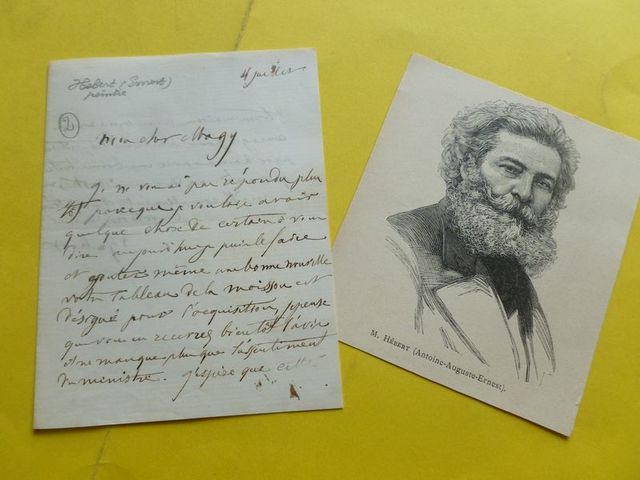 Hébert (Ernest)
peintre
2
4 juillet
mon cher Magy
Je ne vous ai pas répondu plus
tôt parceque je voulais avoir
quelque chose de certain à vous
dire aujourd'huy je puis le faire
et ajouter même une bonne nouvelle
votre tableau de la moisson est
désigné pour l'acquisition, je pense
que vous en recevrez bientôt l'avis
il ne manque plus que l'assentiment
du ministre. J'espère que cette
M. HÉBERT (Antoine-Auguste-Ernest).